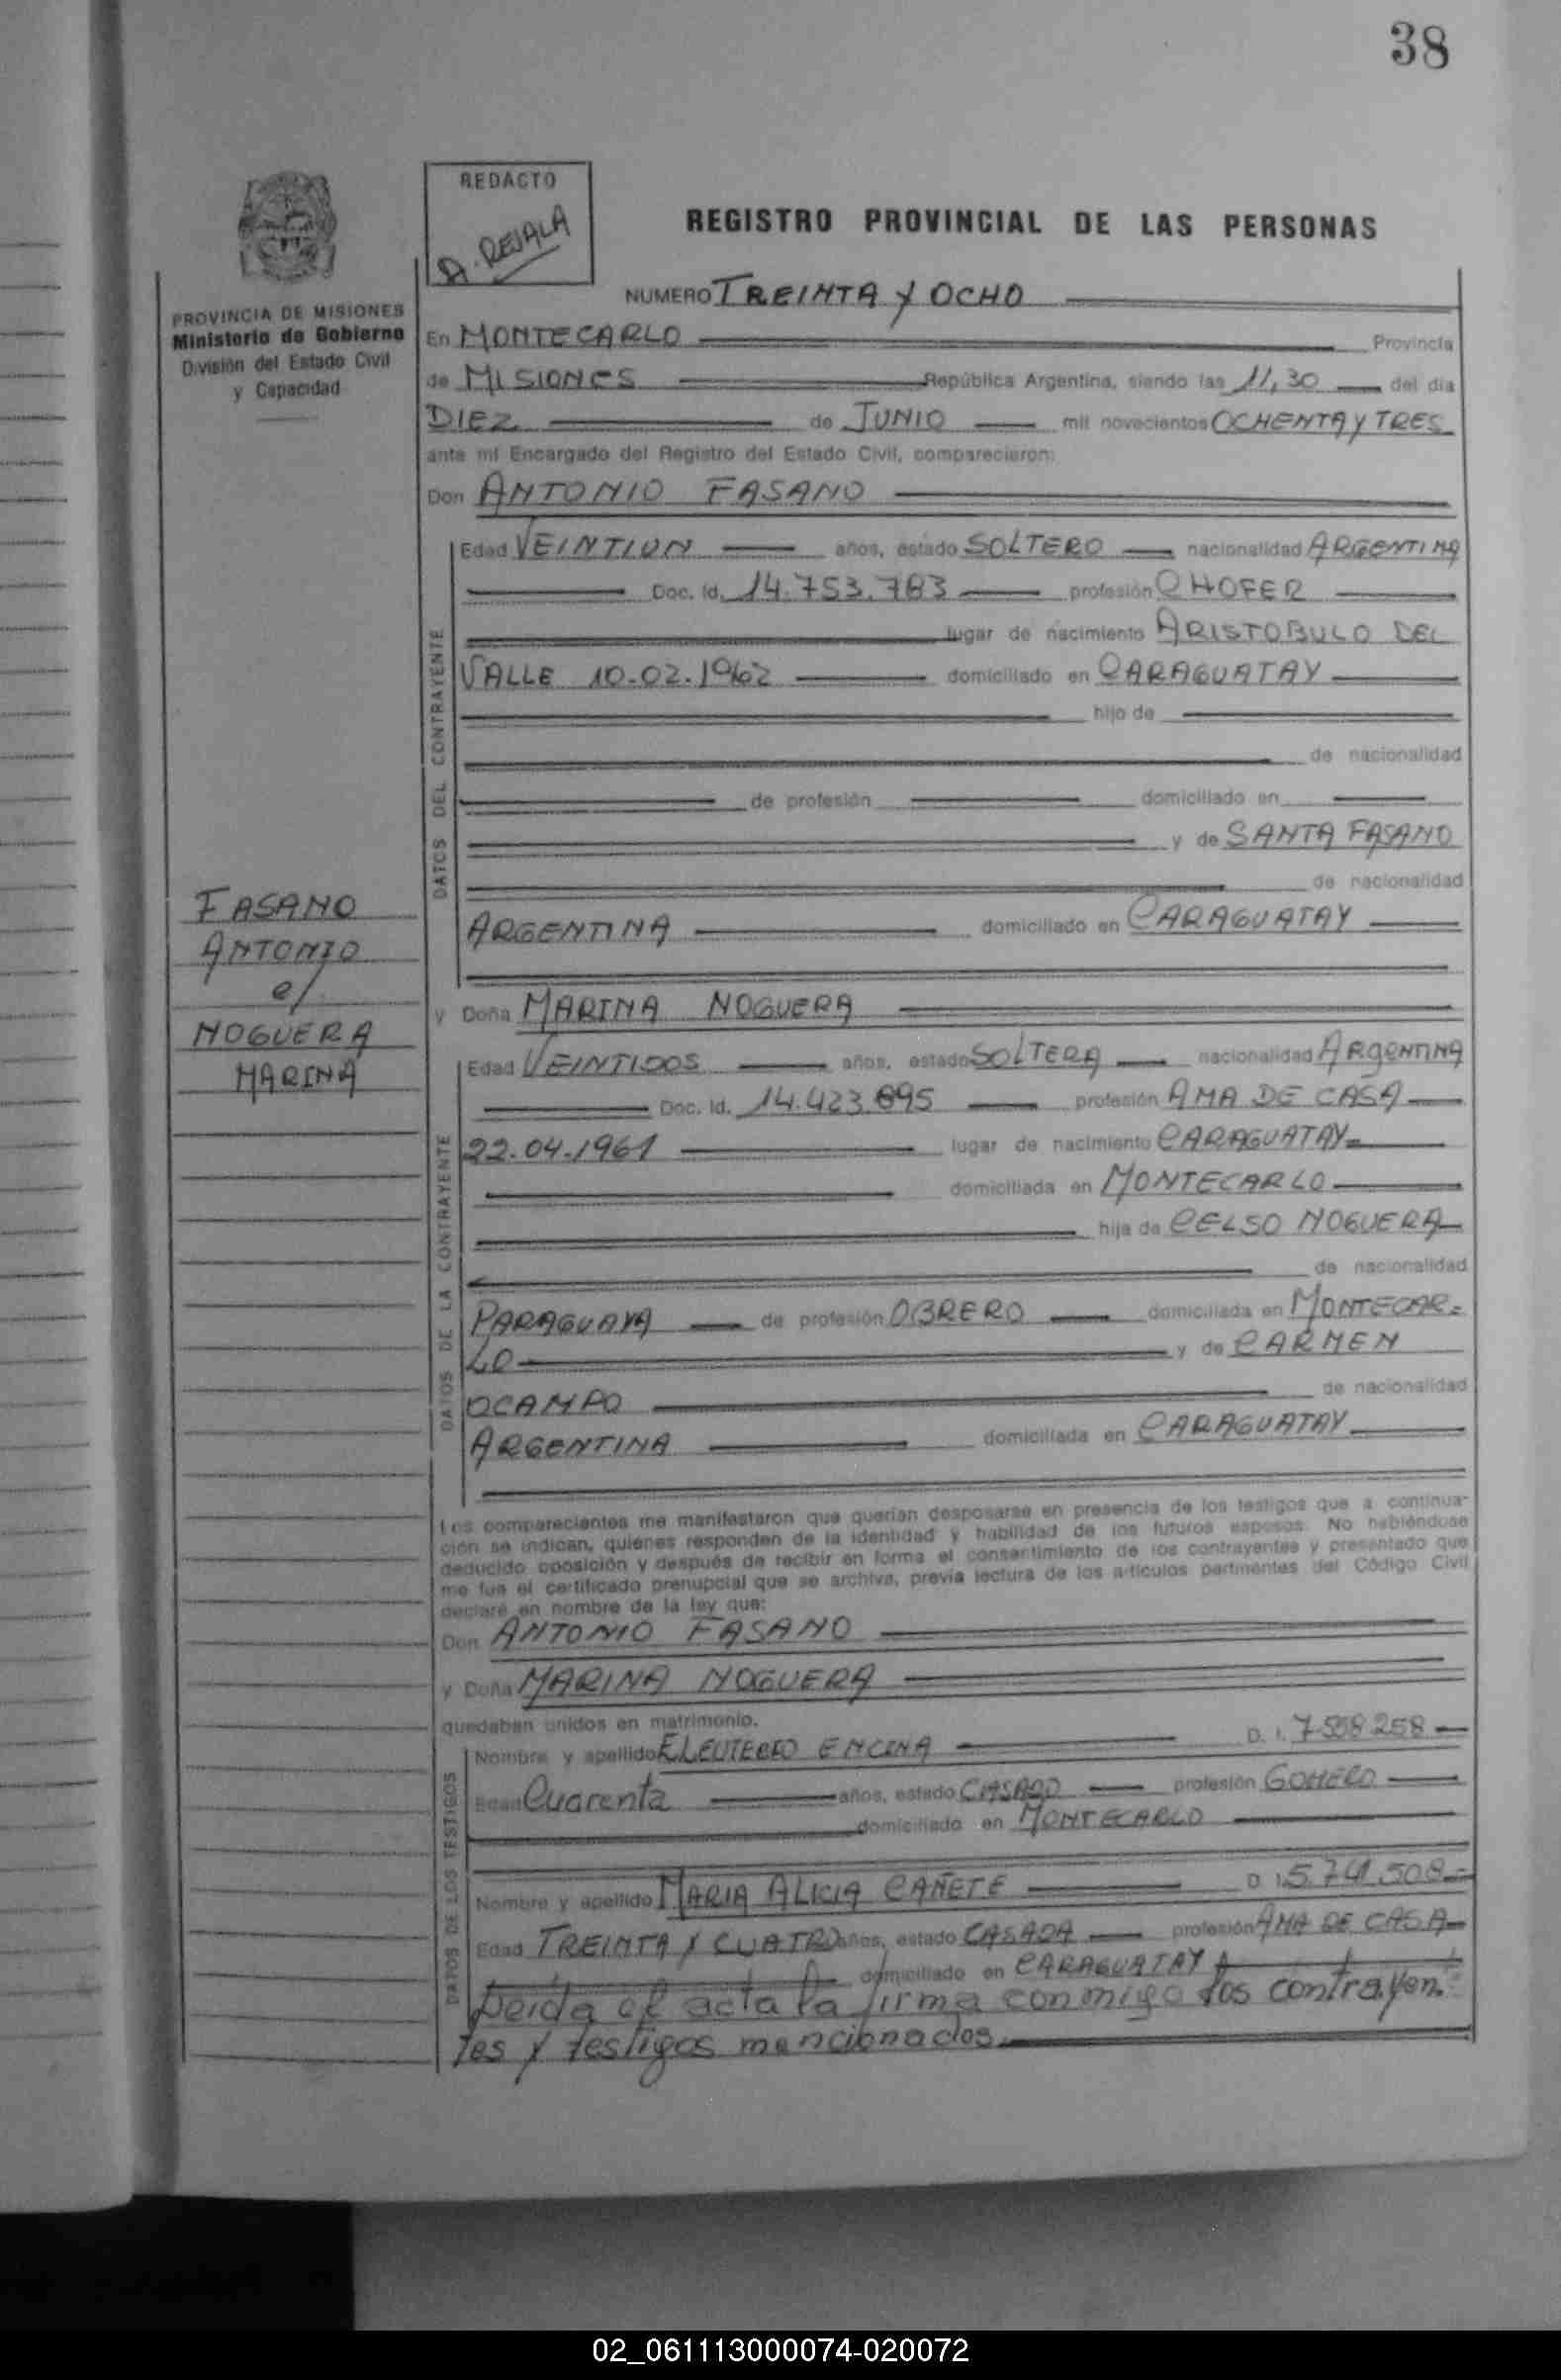 38
REDACTO
A. REJALA
REGISTRO PROVINCIAL DE LAS PERSONAS
NUMERO TREINTA Y OCHO
PROVINCIA DE MISIONES
Ministerio de Gobierno
División del Estado Civil
y Capacidad
En MONTECARLO Provincia
de MISIONES República Argentina, siendo las 11,30 del día
DIEZ de JUNIO mil novecientos OCHENTA Y TRES
ante mí Encargado del Registro del Estado Civil, comparecieron:
Don ANTONIO FASANO
DATOS DEL CONTRAYENTE
Edad VEINTIUN años, estado SOLTERO nacionalidad ARGENTINA
Doc. Id. 14.753.783 profesión CHOFER
lugar de nacimiento ARISTOBULO DEL
VALLE 10-02-1962 domiciliado en CARAGUATAY
hijo de
de nacionalidad
de profesión domiciliado en
y de SANTA FASANO
de nacionalidad
ARGENTINA domiciliado en CARAGUATAY
FASANO
ANTONIO
c/
NOGUERA
MARINA
y Doña MARINA NOGUERA
DATOS DE LA CONTRAYENTE
Edad VEINTIDOS años, estado SOLTERA nacionalidad ARGENTINA
Doc. Id. 14.423.695 profesión AMA DE CASA
22-04-1961 lugar de nacimiento CARAGUATAY
domiciliada en MONTECARLO
hija de CELSO NOGUERA
de nacionalidad
PARAGUAYA de profesión OBRERO domiciliada en MONTECAR=
LO y de CARMEN
OCAMPO de nacionalidad
ARGENTINA domiciliada en CARAGUATAY
Los comparecientes me manifestaron que querían desposarse en presencia de los testigos que a continua-
ción se indican, quienes responden de la identidad y habilidad de los futuros esposos. No habiéndose
deducido oposición y después de recibir en forma el consentimiento de los contrayentes y presentado que
me fue el certificado prenupcial que se archiva, previa lectura de los artículos pertinentes del Código Civil
declaré en nombre de la ley que:
Don ANTONIO FASANO
y Doña MARINA NOGUERA
quedaban unidos en matrimonio.
DATOS DE LOS TESTIGOS
Nombre y apellido ELEUTERIO ENCINA D. I. 7.558.258
Edad Cuarenta años, estado CASADO profesión GOMERO
domiciliado en MONTECARLO
Nombre y apellido MARIA ALICIA CAÑETE D. I. 5.741.508
Edad TREINTA Y CUATRO años, estado CASADA profesión AMA DE CASA
domiciliado en CARAGUATAY
Leida el acta la firma conmigo los contrayen=
tes y testigos mencionados
02_061113000074-020072